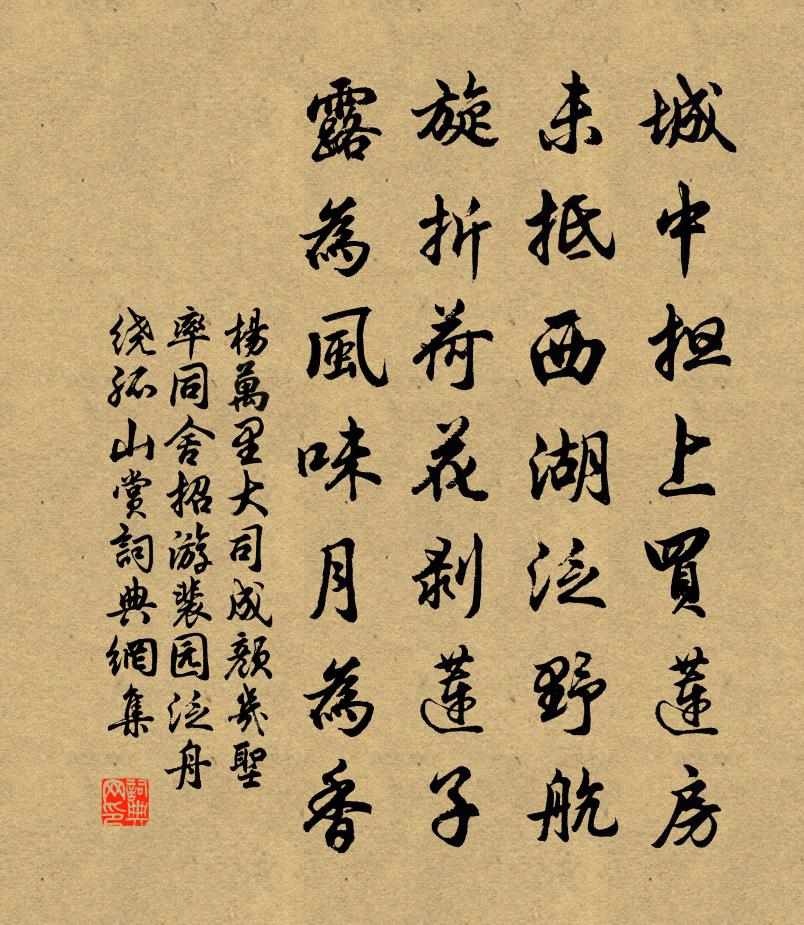 城中担上買蓮房
未抵西湖泛野航
旋折荷花剥蓮子
露為風味月為香
楊萬里大司成顔幾聖
率同舍招游裴园泛舟
绕孤山賞詞典網集
詞典网印